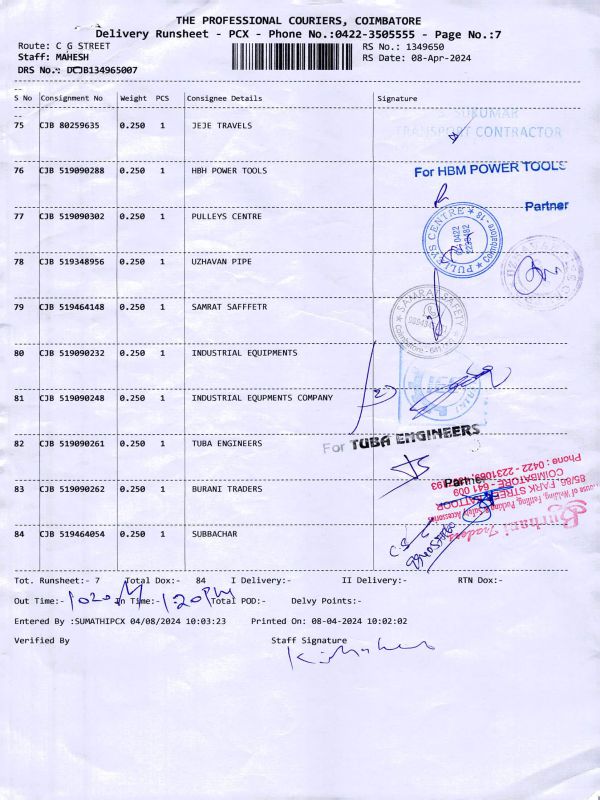 THE PROFESSIONAL COURIERS, COIMBATORE
Delivery Runsheet - PCX - Phone No.:0422-3505555 - Page No.:7
Route: C G STREET RS No.: 1349650
Staff: MAHESH RS Date: 08-Apr-2024
DRS No.: DCJB134965007
S No Consignment No Weight PCS Consignee Details Signature
75 CJB 80259635 0.250 1 JEJE TRAVELS
S. SUKUMAR
TRANSPORT CONTRACTOR
76 CJB 519090288 0.250 1 HBH POWER TOOLS
For HBM POWER TOOLS
Partner
77 CJB 519090302 0.250 1 PULLEYS CENTRE
PULLYS CENTRE
Coimbatore - 18
0422
78 CJB 519348956 0.250 1 UZHAVAN PIPE
79 CJB 519464148 0.250 1 SAMRAT SAFFFETR
SAMRAT SAFETY
80 CJB 519090232 0.250 1 INDUSTRIAL EQUIPMENTS
81 CJB 519090248 0.250 1 INDUSTRIAL EQUPMENTS COMPANY
82 CJB 519090261 0.250 1 TUBA ENGINEERS
For TUBA ENGINEERS
Partner
83 CJB 519090262 0.250 1 BURANI TRADERS
Burhani Traders
COIMBATORE - 641 009
Phone : 0422 - 2231069,
84 CJB 519464054 0.250 1 SUBBACHAR
Tot. Runsheet:- 7 Total Dox:- 84 I Delivery:- II Delivery:- RTN Dox:-
Out Time:- In Time:- 1:20 PM Total POD:- Delvy Points:-
Entered By :SUMATHIPCX 04/08/2024 10:03:23 Printed On: 08-04-2024 10:02:02
Verified By Staff Signature